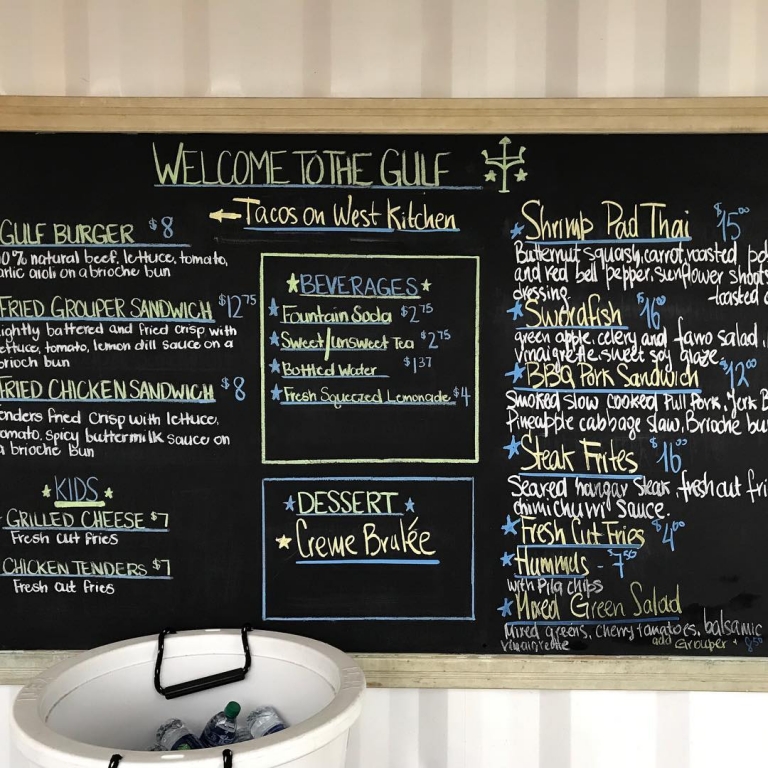 WELCOME TO THE GULF
← Tacos on West Kitchen
GULF BURGER $8
0% natural beef, lettuce, tomato,
arlic aioli on a brioche bun
FRIED GROUPER SANDWICH $12 75
ightly battered and fried crisp with
ettuce, tomato, lemon dill sauce on a
brioch bun
FRIED CHICKEN SANDWICH $8
enders fried crisp with lettuce,
omato, spicy buttermilk sauce on
a brioche bun
KIDS
GRILLED CHEESE $7
Fresh cut fries
CHICKEN TENDERS $7
Fresh cut fries
BEVERAGES
Fountain Soda $2 75
Sweet/Unsweet Tea $2 75
Bottled Water $1 37
Fresh Squeezed Lemonade $4
DESSERT
Creme Brulée
Shrimp Pad Thai $15 00
Butternut squash, carrot, roasted
and red bell pepper, sunflower shoots
dressing.
Swordfish $16 00
green apple, celery and farro salad,
vinaigrette, sweet soy glaze.
BBQ Pork Sandwich $12 00
Smoked slow cooked Pull Pork, Jerk B
Pineapple cabbage slaw, Brioche bu
Steak Frites $16 00
Seared hangar steak, fresh cut fri
chimichurri sauce.
Fresh Cut Fries $4 00
Hummus - $7 50
with Pita chips
Mixed Green Salad
Mixed greens, cherry tomatoes, balsamic
vinaigrette add Grouper +